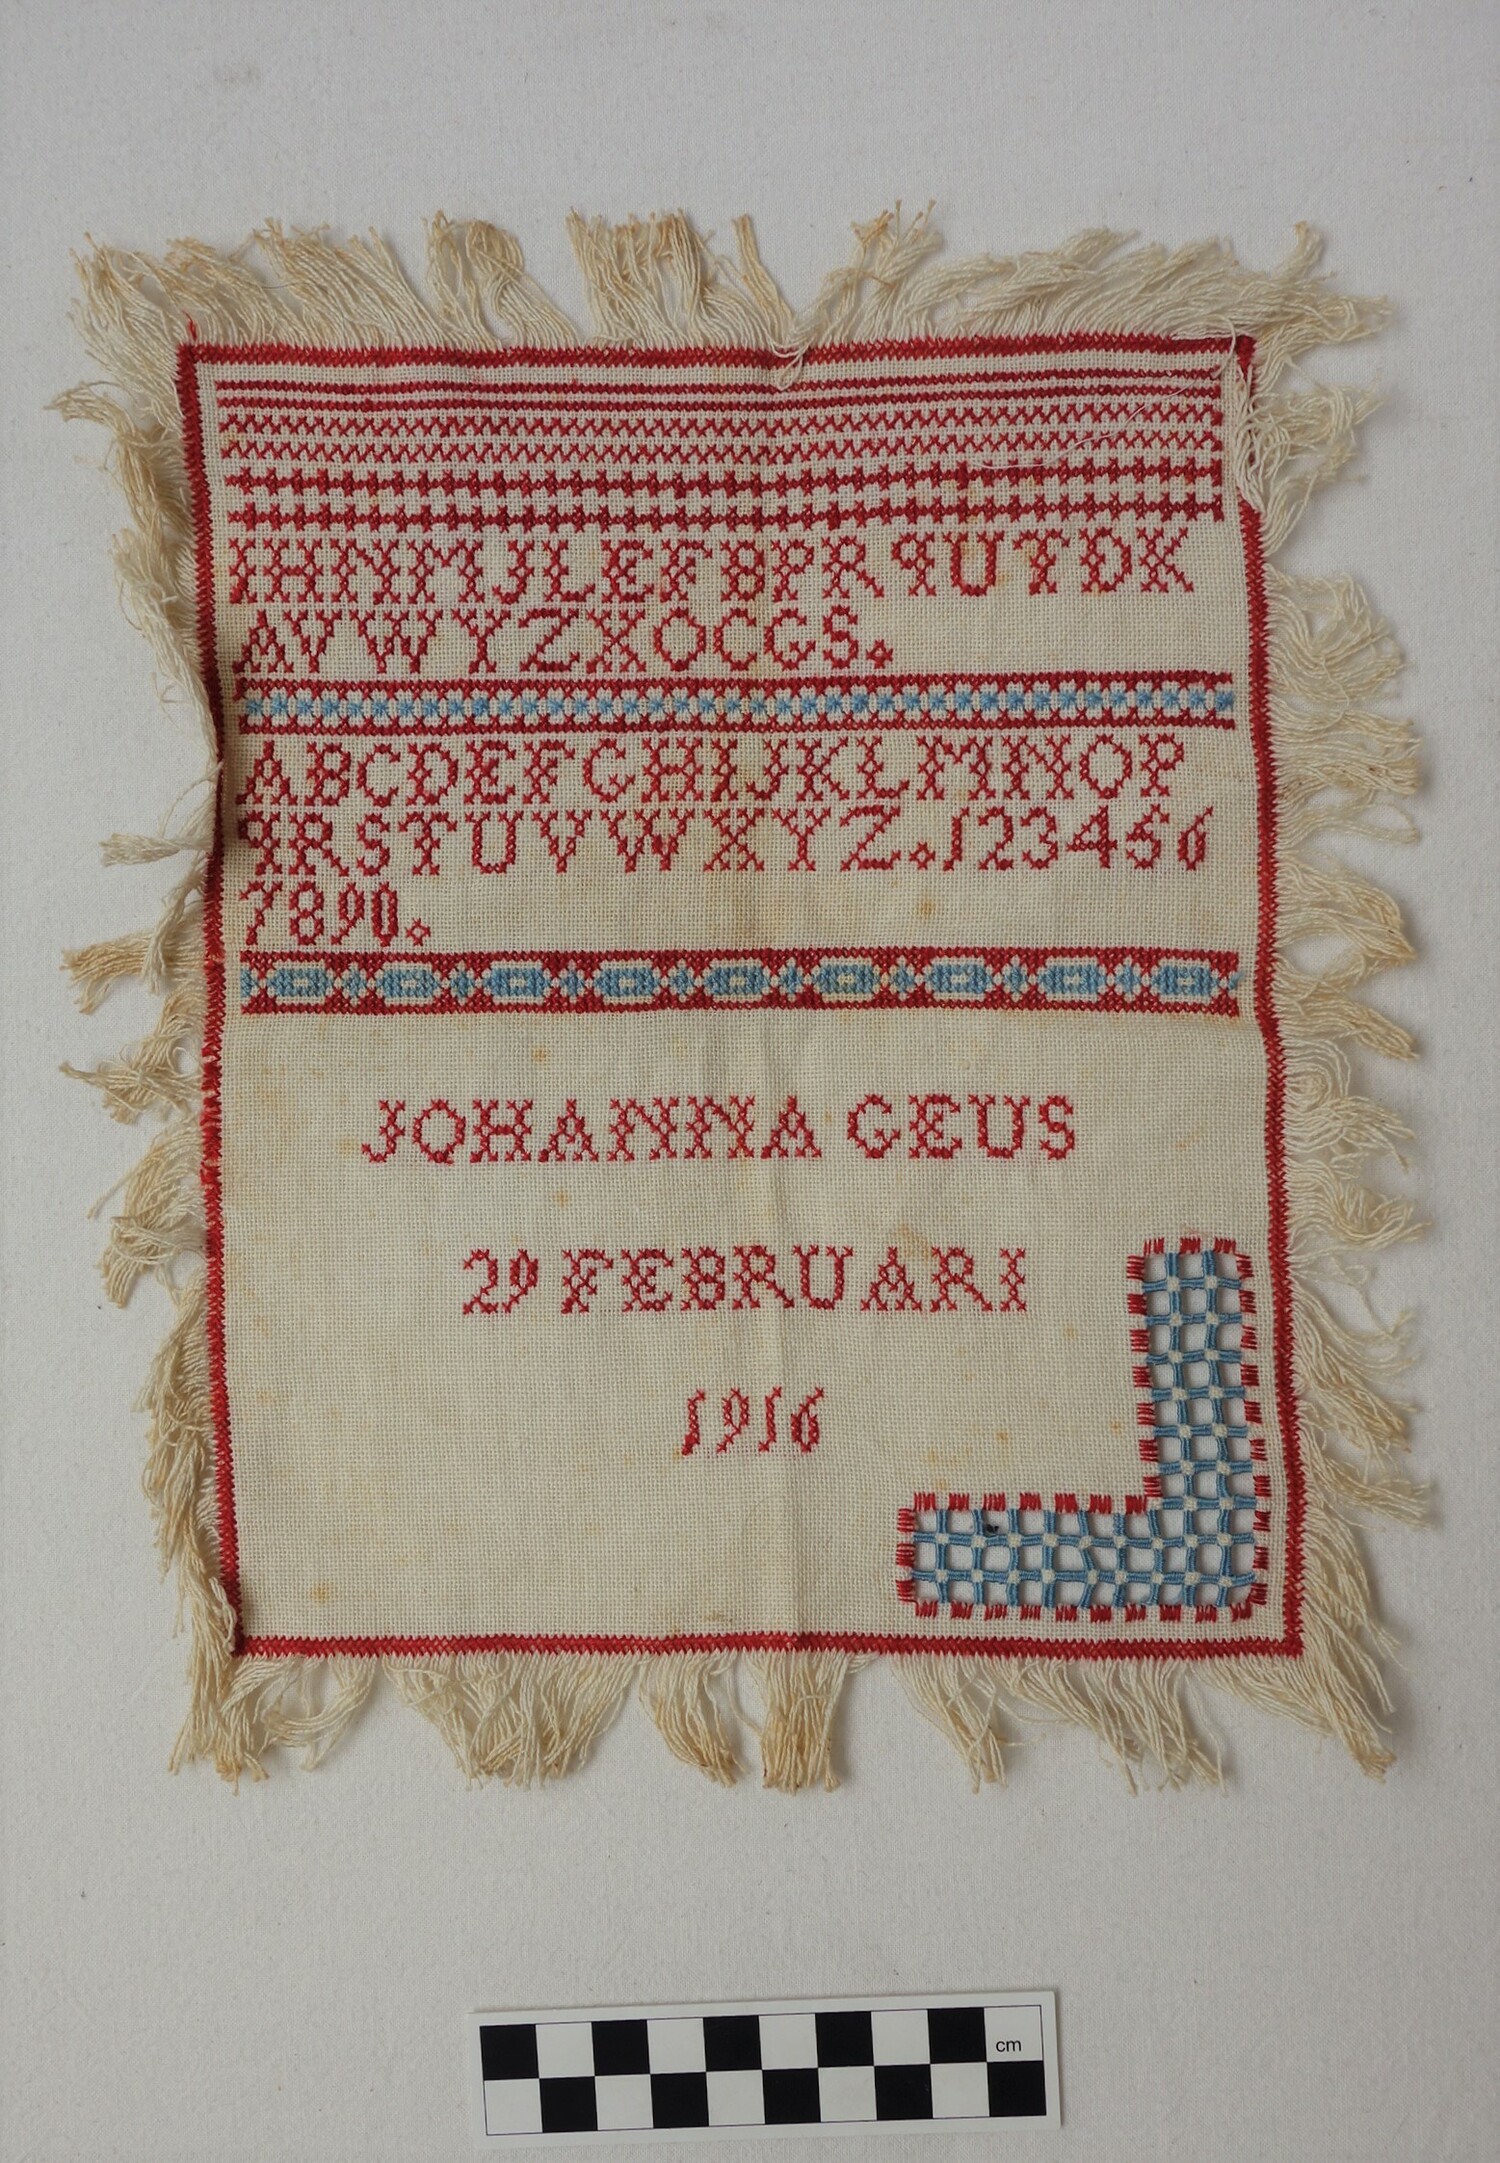 IHNMJLEFBPRQUTDK
AVWYZXOCGS.
ABCDEFGHIJKLMNOP
QRSTUVWXYZ.123456
7890.
JOHANNA GEUS
29 FEBRUARI
1916
cm